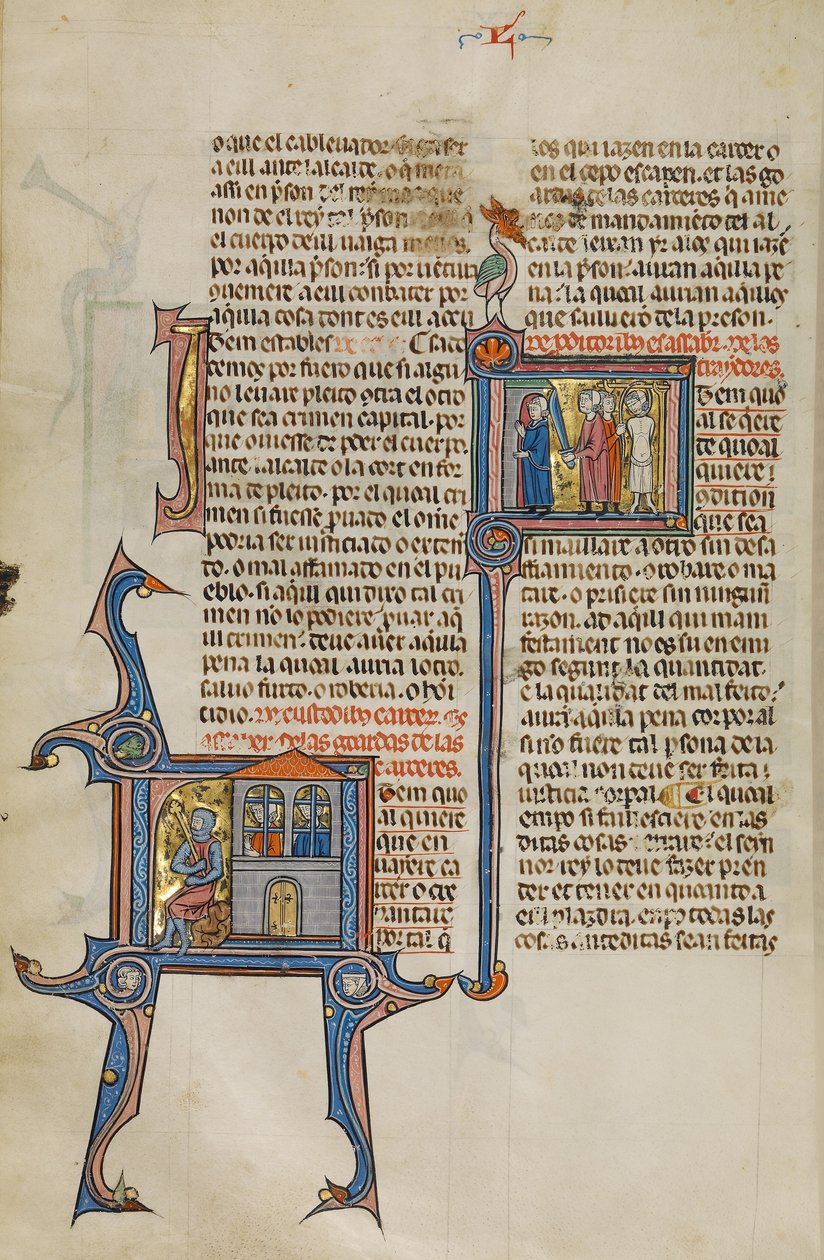 o que el cableuador
a eill ante lalcalde. o q̄
assi en p̄son del rey
non de el rey tal p̄son
el cuerpo deill uaiga menos.
por aq̄illa p̄son. si por uētura
 a eill conbater por
aq̄illa cosa dont es eill
Item establesc
temos por fuero que si algu
no leuare pleito ɔtra el otro
que sea crimen capital. por
que ouiesse de poder el cuerpo.
ante lalcalde o la cort en for
ma de pleito. por el quoal cri
men si fuesse p̄uado el om̄e
podria ser iusticiado o exterr
to. o mal affamado en el pu
eblo. si aq̄ill qui dixo tal cri
men no lo podiere p̄uar aq̄
ill crimen. deue auer aq̄illa
pena la quoal auria lotro.
saluo furto. o roberia. o homi
cidio. De custodibꝫ carcer. es
assaber. de las goardas de las
carceres.
Item quo
al quiere
que en
 ca
rcer o cre
bantare
por tal q̄
los qui iazen en la carcer o
en el cepo escapen. et las go
ardas de las carceres q̄
 de mandamiēto del al
calde leixan yr a los qui iazē
en la p̄son. auran aq̄illa pe
na. la quoal aurian aq̄illos
que saluiero de la preson.
De proditoribꝫ es assabr̄. de los
traydores.
Item quo
al se q̄ere
de quoal
quiere
ɔdition
que sea
si maillare a otro sin desa
ffiamiento. o robare o ma
tare. o prisiere sin ningun̄
razon. ad aq̄ill qui mani
festament no es su enemi
go segunt la quantidat.
e la qualidat del mal feito.
aura aq̄illa pena corporal
si no fuere tal p̄sona de la
quoal non deue ser feita
iusticia corpal. El quoal
empo si
ditas cosas el seyn
nor rey lo deue fazer pren
der et tener en quoanto a
eill plazdra. enpo todas las
cosas anteditas sean feitas